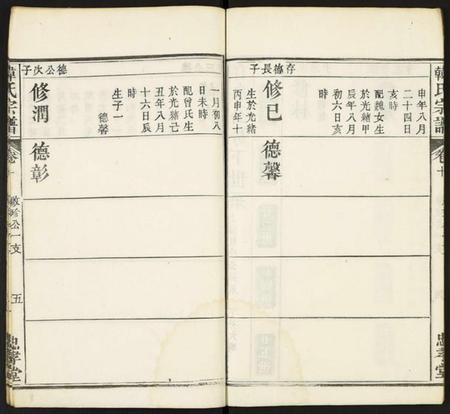 韓氏宗譜
卷十
忠孝堂
存德長子
申年八月
二十四日
亥時
配魏女生
於光緒甲
辰年八月
初六日亥
時
修已 德馨
生於光緒
丙申年十
德公次子
一月初八
日未時
配曾氏生
於光緒己
丑年八月
十六日辰
時
生子一
德馨
修潤 德彰
韓氏宗譜
卷十
公一支
五
忠孝堂